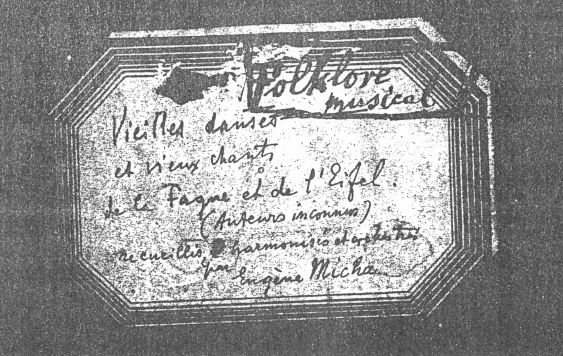 Folklore
musical
Vieilles danses
et vieux chants
de la Fagne et de l'Eifel.
(Auteurs inconnus)
recueillis harmonisés et orchestrés
par
Eugène Micha